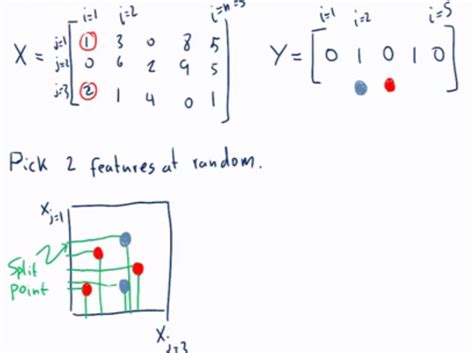 i=1 i=2 i=n=5
X = j=1 1 3 0 8 5
j=2 0 6 2 9 5
j=3 2 1 4 0 1
i=1 i=2 i=5
Y = [ 0 1 0 1 0 ]
Pick 2 features at random.
Xj=1
Split
point
Xj=3